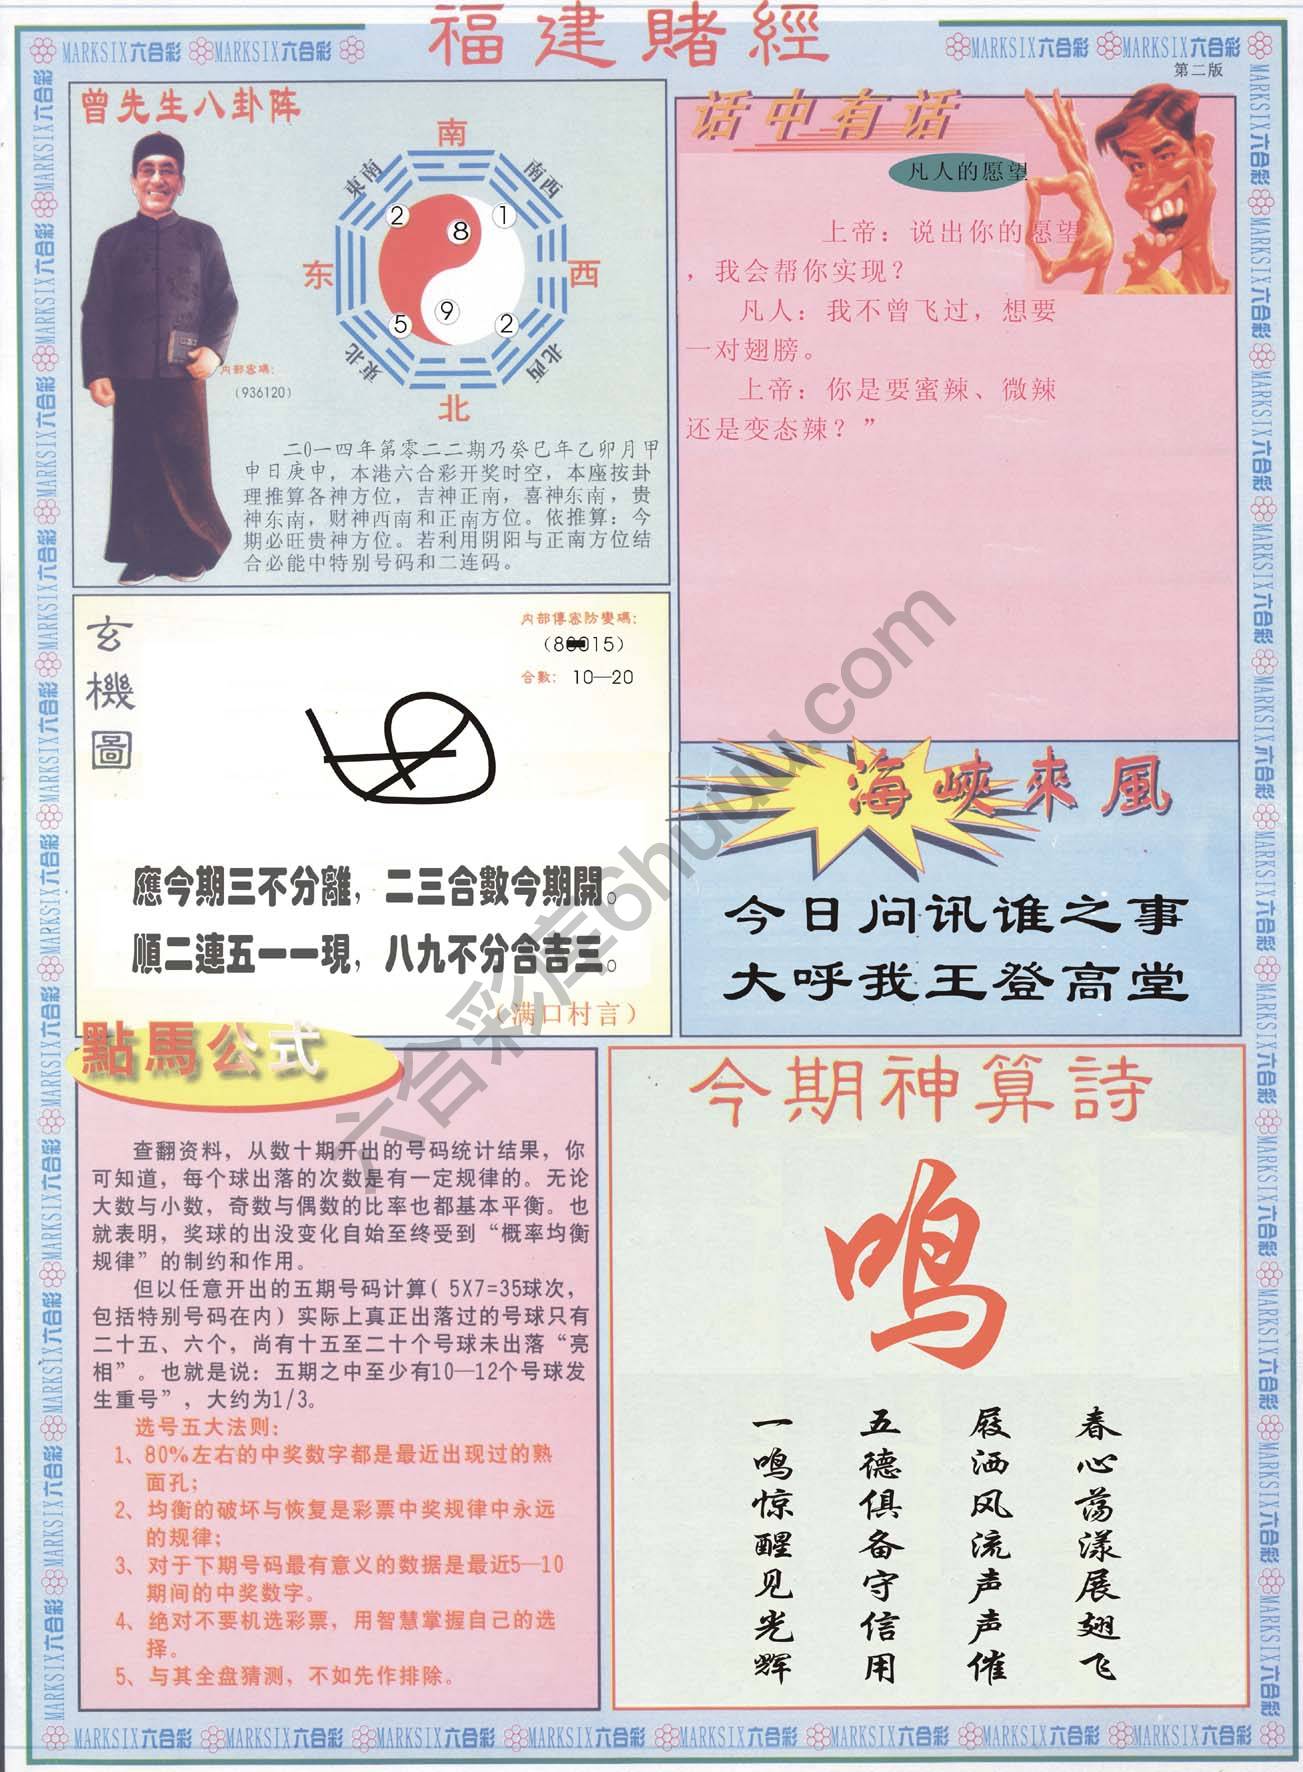 福建賭經
MARKSIX六合彩 MARKSIX六合彩
MARKSIX六合彩 MARKSIX六合彩
第二版
曾先生八卦阵
南
東南
南西
2
8
1
东
西
5
9
2
東北
北西
北
内部密碼:
(936120)
二0一四年第零二二期乃癸巳年乙卯月甲
申日庚申，本港六合彩开奖时空，本座按卦
理推算各神方位，吉神正南，喜神东南，贵
神东南，财神西南和正南方位。依推算：今
期必旺贵神方位。若利用阴阳与正南方位结
合必能中特别号码和二连码。
话中有话
凡人的愿望
上帝：说出你的愿望
，我会帮你实现？
凡人：我不曾飞过，想要
一对翅膀。
上帝：你是要蜜辣、微辣
还是变态辣？”
玄機圖
内部傳密防變碼:
合數: 10—20
應今期三不分離，二三合數今期開。
順二連五一一現，八九不分合吉三。
（满口村言）
海峽來風
今日问讯谁之事
大呼我王登高堂
點馬公式
查翻资料，从数十期开出的号码统计结果，你
可知道，每个球出落的次数是有一定规律的。无论
大数与小数，奇数与偶数的比率也都基本平衡。也
就表明，奖球的出没变化自始至终受到“概率均衡
规律”的制约和作用。
但以任意开出的五期号码计算( 5X7=35球次，
包括特别号码在内）实际上真正出落过的号球只有
二十五、六个，尚有十五至二十个号球未出落“亮
相”。也就是说：五期之中至少有10—12个号球发
生重号”，大约为1/3。
选号五大法则:
1、80%左右的中奖数字都是最近出现过的熟
面孔;
2、均衡的破坏与恢复是彩票中奖规律中永远
的规律;
3、对于下期号码最有意义的数据是最近5—10
期间的中奖数字。
4、绝对不要机选彩票，用智慧掌握自己的选
择。
5、与其全盘猜测，不如先作排除。
今期神算詩
鸣
春心荡漾展翅飞
屐洒风流声声催
五德俱备守信用
一鸣惊醒见光辉
六合彩库6huuu.com
MARKSIX六合彩 MARKSIX六合彩 MARKSIX六合彩 MARKSIX六合彩 MARKSIX六合彩 MARKSIX六合彩 MARKSIX六合彩 MARKSIX六合彩